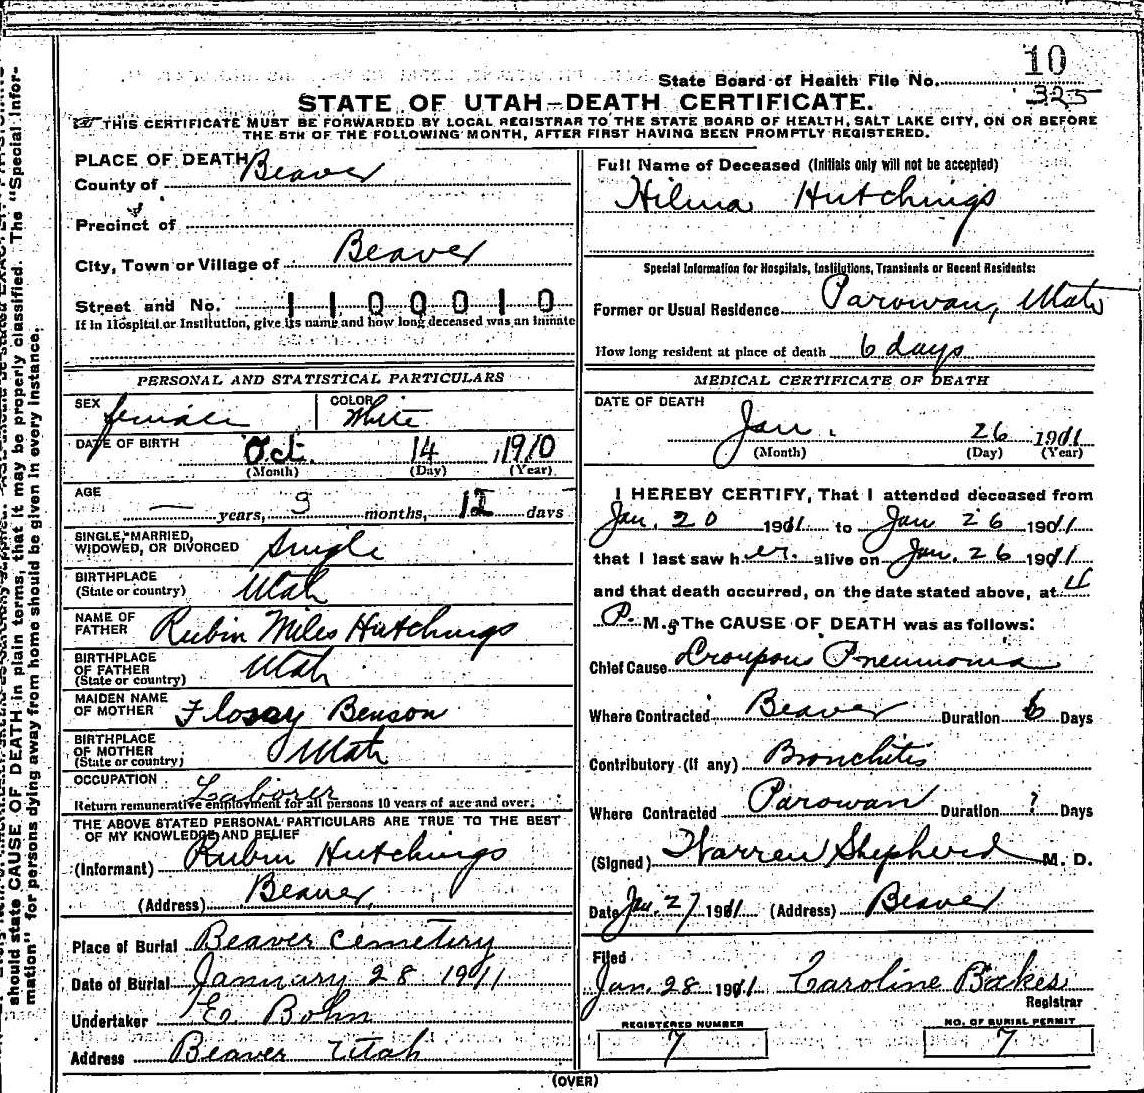 10
State Board of Health File No. 325
STATE OF UTAH—DEATH CERTIFICATE.
THIS CERTIFICATE MUST BE FORWARDED BY LOCAL REGISTRAR TO THE STATE BOARD OF HEALTH, SALT LAKE CITY, ON OR BEFORE
THE 5TH OF THE FOLLOWING MONTH, AFTER FIRST HAVING BEEN PROMPTLY REGISTERED.
PLACE OF DEATH
County of Beaver
Precinct of
City, Town or Village of Beaver
Street and No. 1 1 0 0 0 1 0
If in Hospital or Institution, give its name and how long deceased was an inmate
PERSONAL AND STATISTICAL PARTICULARS
SEX female COLOR White
DATE OF BIRTH Oct. 14, 1910
(Month) (Day) (Year)
AGE
— years, 3 months, 12 days
SINGLE, MARRIED,
WIDOWED, OR DIVORCED Single
BIRTHPLACE
(State or country) Utah
NAME OF
FATHER Rubin Miles Hutchings
BIRTHPLACE
OF FATHER
(State or country) Utah
MAIDEN NAME
OF MOTHER Flosay Benson
BIRTHPLACE
OF MOTHER
(State or country) Utah
OCCUPATION Laborer
Return remunerative employment for all persons 10 years of age and over.
THE ABOVE STATED PERSONAL PARTICULARS ARE TRUE TO THE BEST
OF MY KNOWLEDGE AND BELIEF
(Informant) Rubin Hutchings
(Address) Beaver
Place of Burial Beaver Cemetery
Date of Burial January 28 1911
Undertaker E. Bohn
Address Beaver Utah
Full Name of Deceased (Initials only will not be accepted)
Hilma Hutchings
Special Information for Hospitals, Institutions, Transients or Recent Residents:
Former or Usual Residence Parowan, Utah
How long resident at place of death 6 days
MEDICAL CERTIFICATE OF DEATH
DATE OF DEATH
Jan. 26 1911
(Month) (Day) (Year)
I HEREBY CERTIFY, That I attended deceased from
Jan. 20 1911 to Jan 26 1911
that I last saw her alive on Jan. 26 1911
and that death occurred, on the date stated above, at 4
P. M. The CAUSE OF DEATH was as follows:
Chief Cause Croupous Pneumonia
Where Contracted Beaver Duration 6 Days
Contributory (if any) Bronchitis
Where Contracted Parowan Duration ? Days
(Signed) Warren Shepherd M. D.
Date Jan. 27 1911 (Address) Beaver
Filed
Jan. 28 1911 Caroline Bakes
Registrar
REGISTERED NUMBER
7
NO. OF BURIAL PERMIT
7
(OVER)
should state CAUSE OF DEATH in plain terms, that it may be properly classified. The "Special Infor-
mation" for persons dying away from home should be given in every instance.